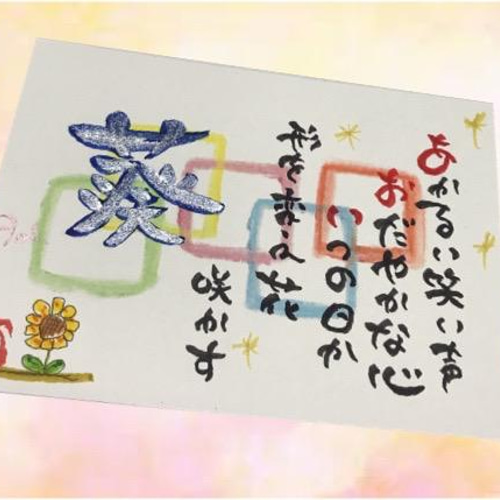 あかるい笑い声
おだやかな心
いつの日か
花
咲かす
葵